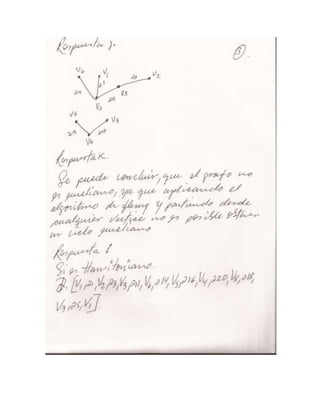 Respuesta J.
3.
V6 V1 V2
a11 a5 a2
V3 a12 V3
V5 V4
a19 a20
V6
Respuesta K.
Se puede concluir, que el grafo no
es euleriano, ya que aplicando el
algoritmo de fleury y partiendo desde
cualquier vertice no es posible obtener
un ciclo euleriano
Respuesta l
Si es Hamiltoniano.
[V1, a1, V2, a3, V3, a11, V6, a19, V5, a16, V4, a20, V8, a18,
V7, a5, V1].